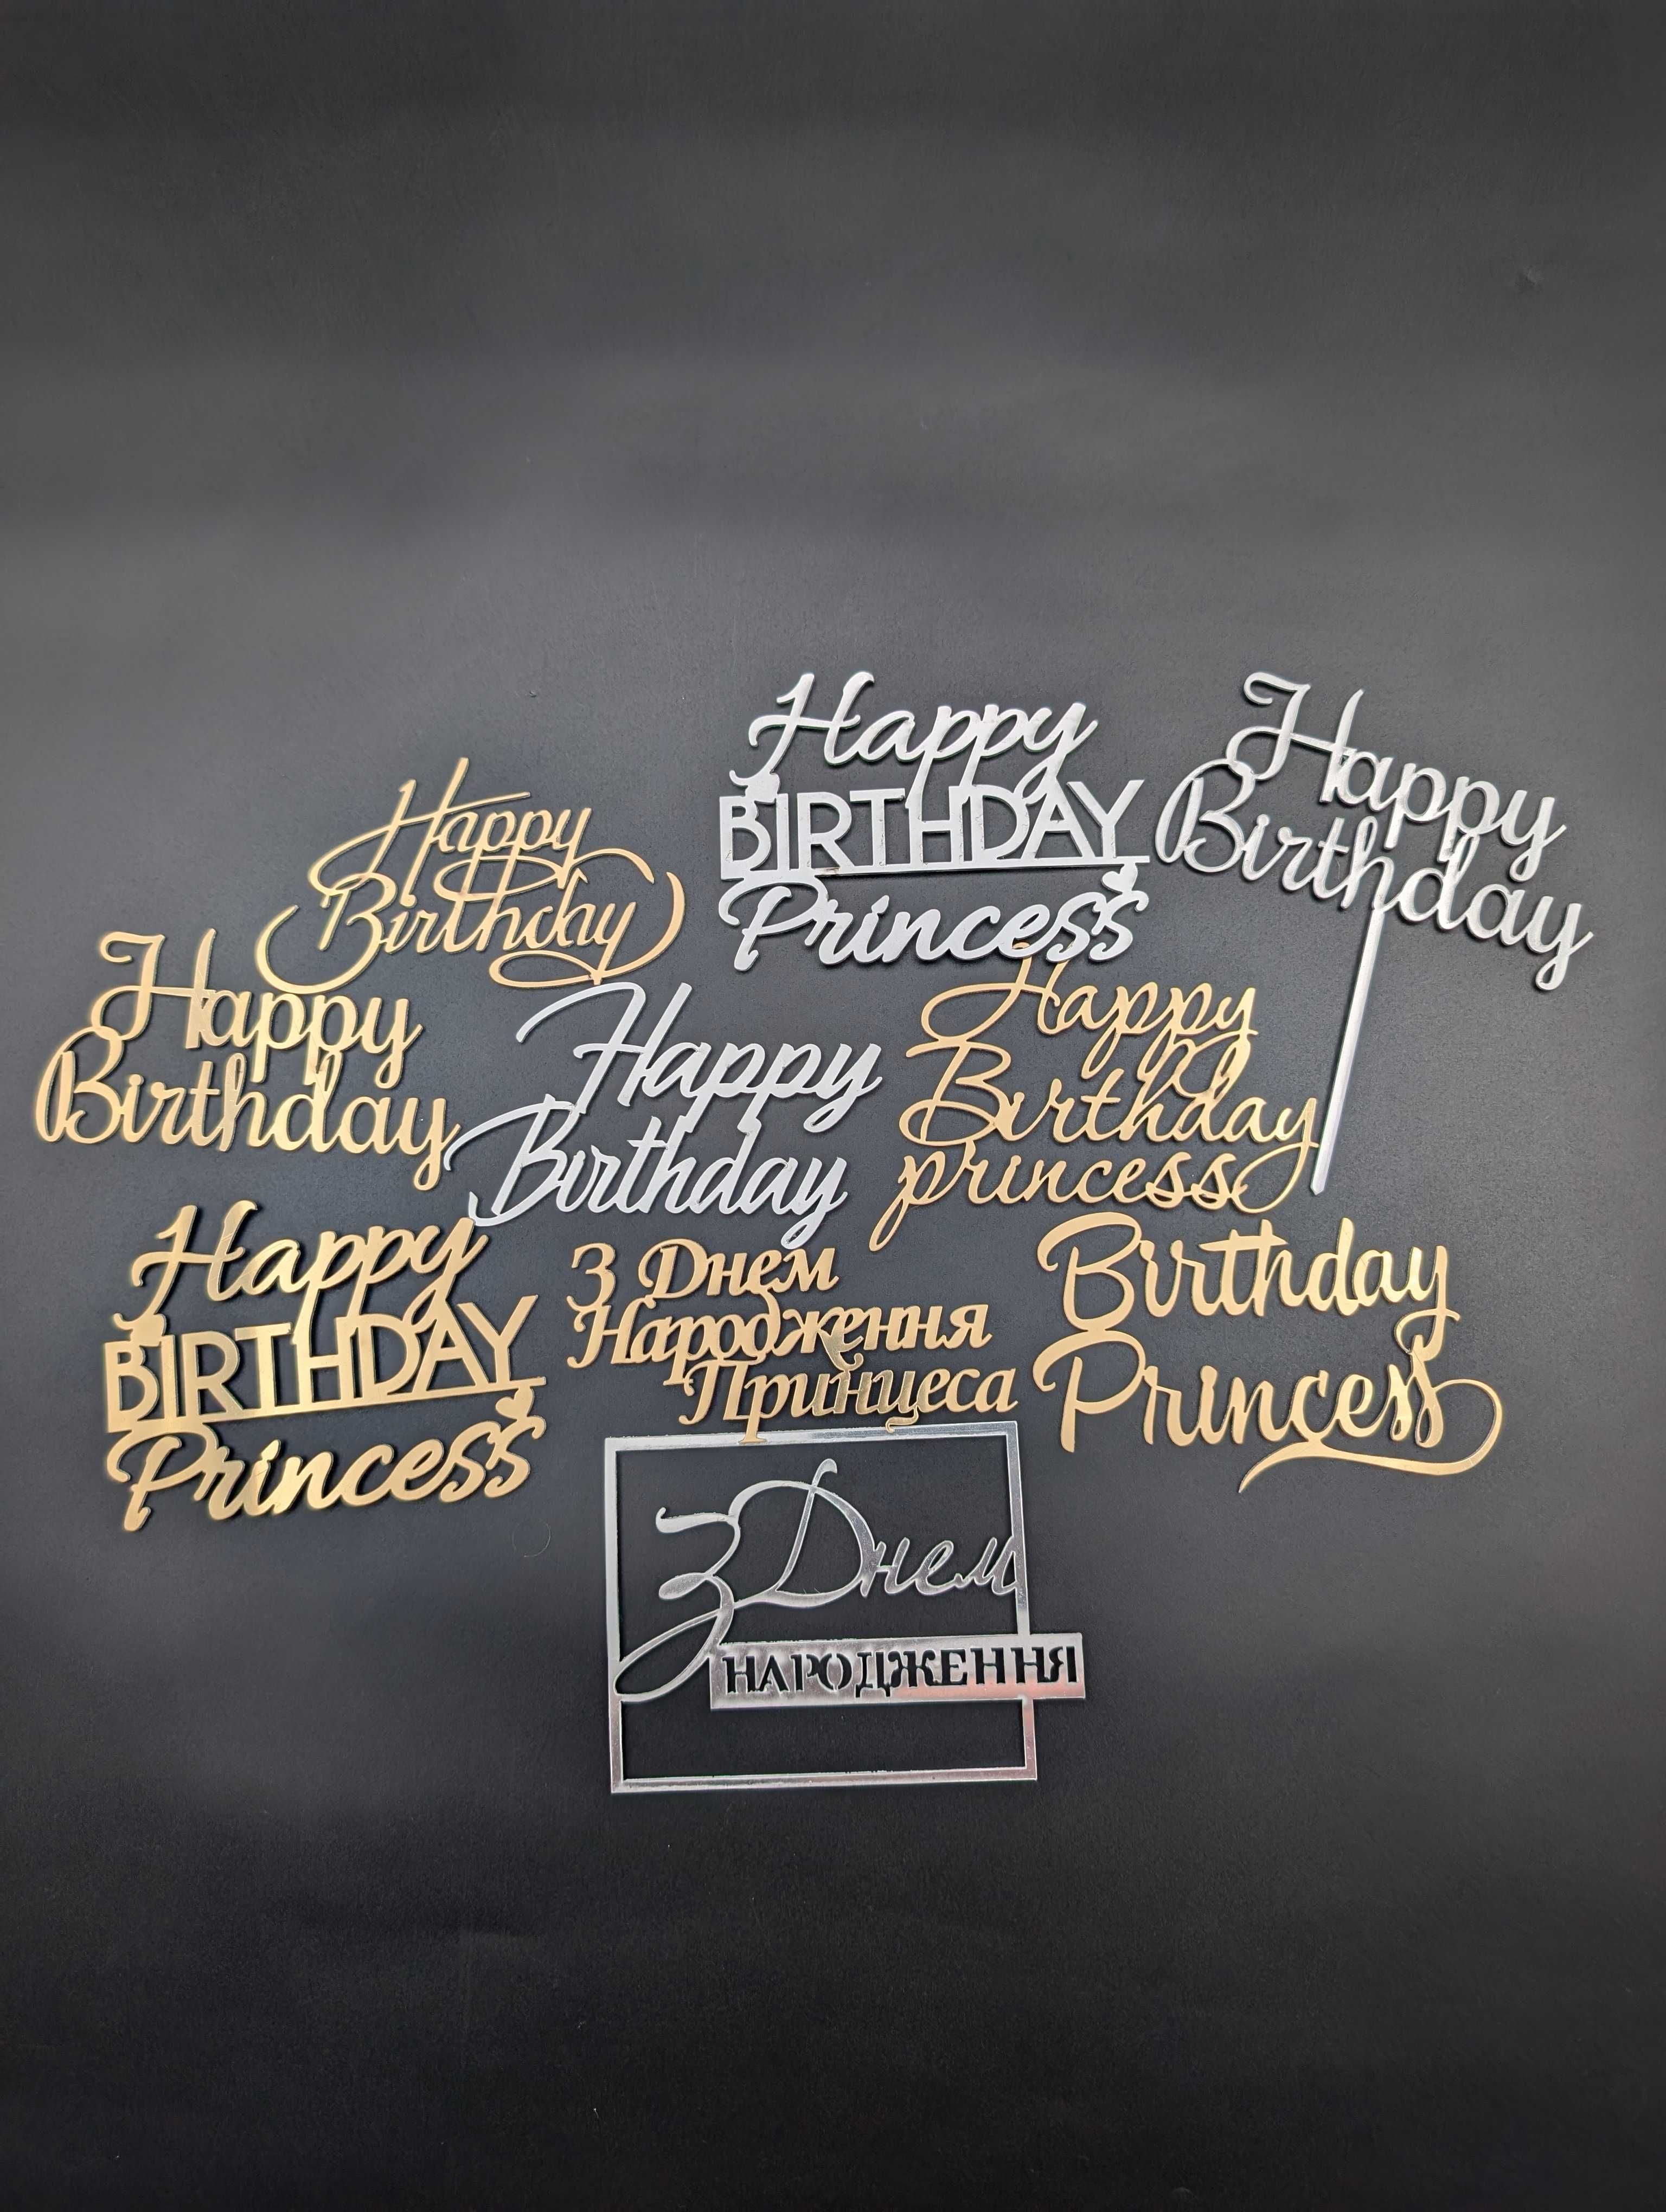 Happy
BIRTHDAY
Princess
Happy
Birthday
Happy
Birthday
Happy
Birthday
Happy
Birthday
Happy
Birthday
princess
Happy
BIRTHDAY
Princess
З Днем
Народження
Принцеса
Birthday
Princess
З Днем
НАРОДЖЕННЯ